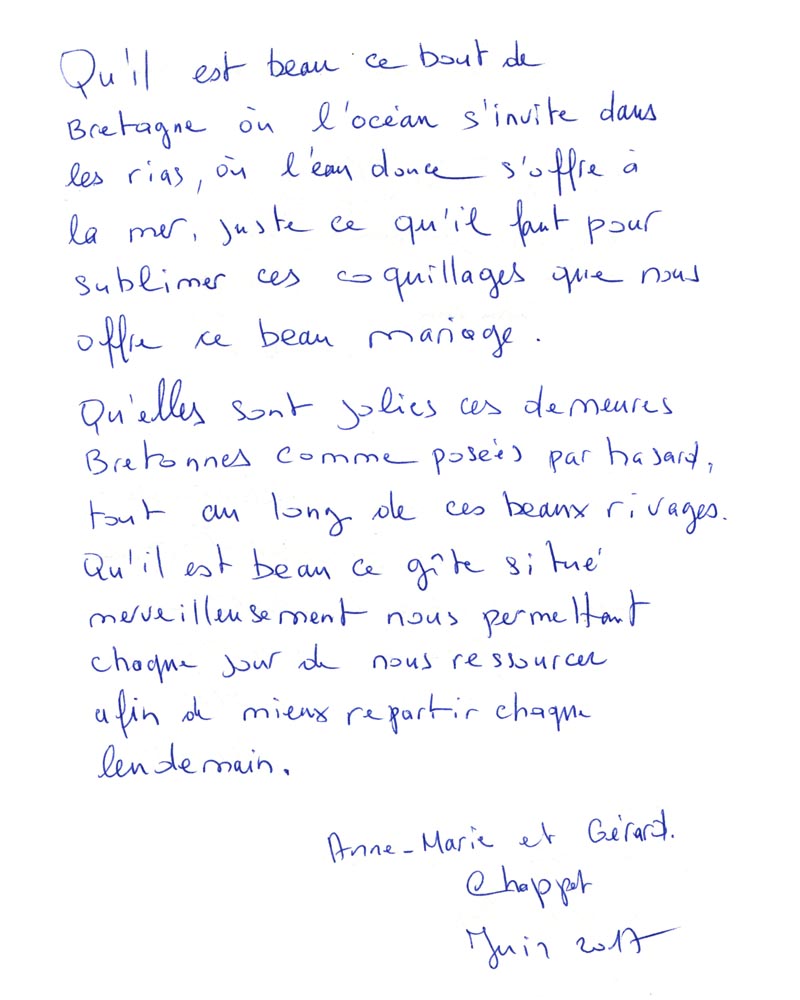 Qu'il est beau ce bout de
Bretagne où l'océan s'invite dans
les rias, où l'eau douce s'offre à
la mer, juste ce qu'il faut pour
sublimer ces coquillages que nous
offre ce beau mariage.
Qu'elles sont jolies ces demeures
Bretonnes comme posées par hasard,
tout au long de ces beaux rivages.
Qu'il est beau ce gîte situé
merveilleusement nous permettant
chaque jour de nous ressourcer
afin de mieux repartir chaque
lendemain.
Anne-Marie et Gérard.
Chappet
Juin 2017